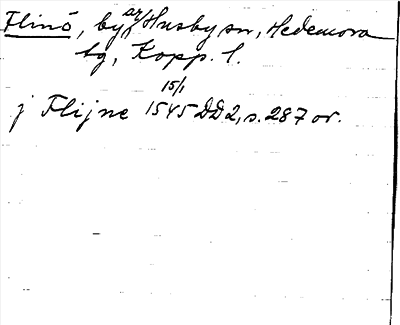 Flinö, by av Husby sn, Hedemora
tg, Kopp. l.
15/1
j Flijne 1545 DD2, s. 287 or.